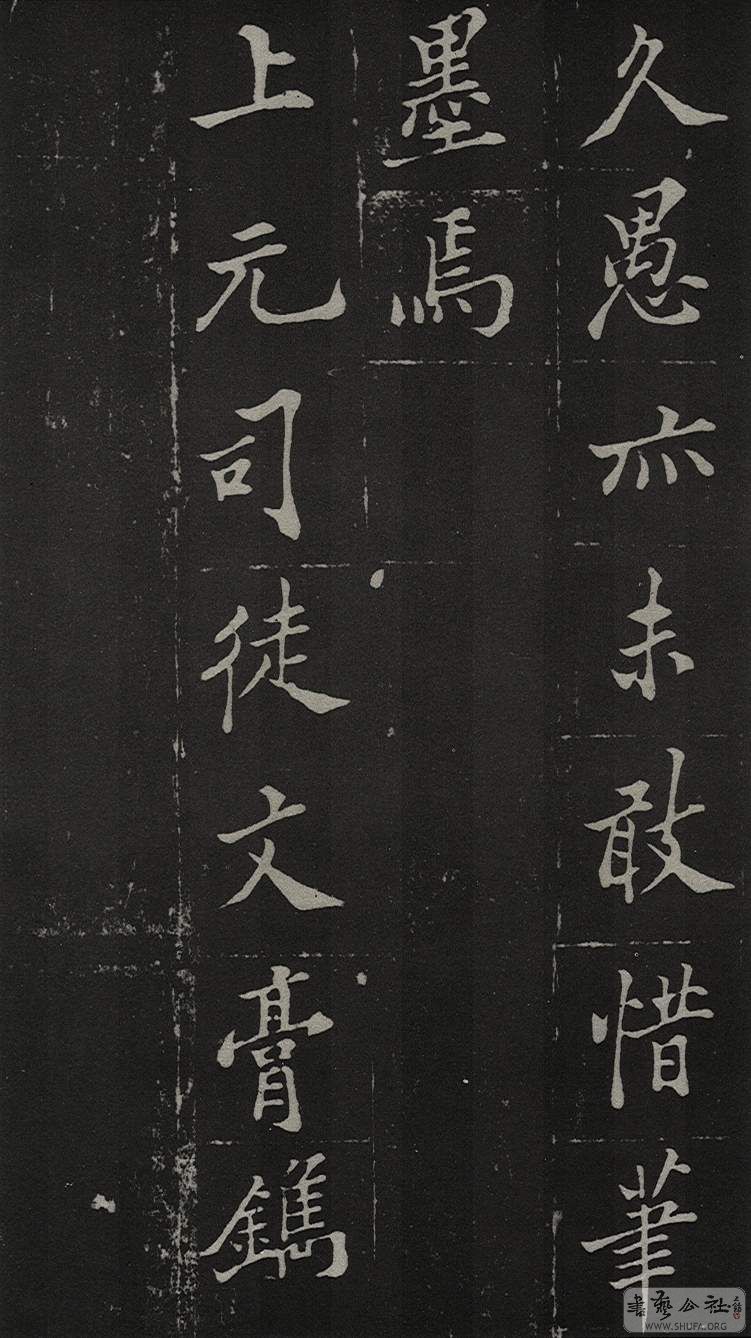 久愚亦未敢惜筆
墨焉
上元司徒文膏鐫
書藝公社
WWW.SHUFA.ORG